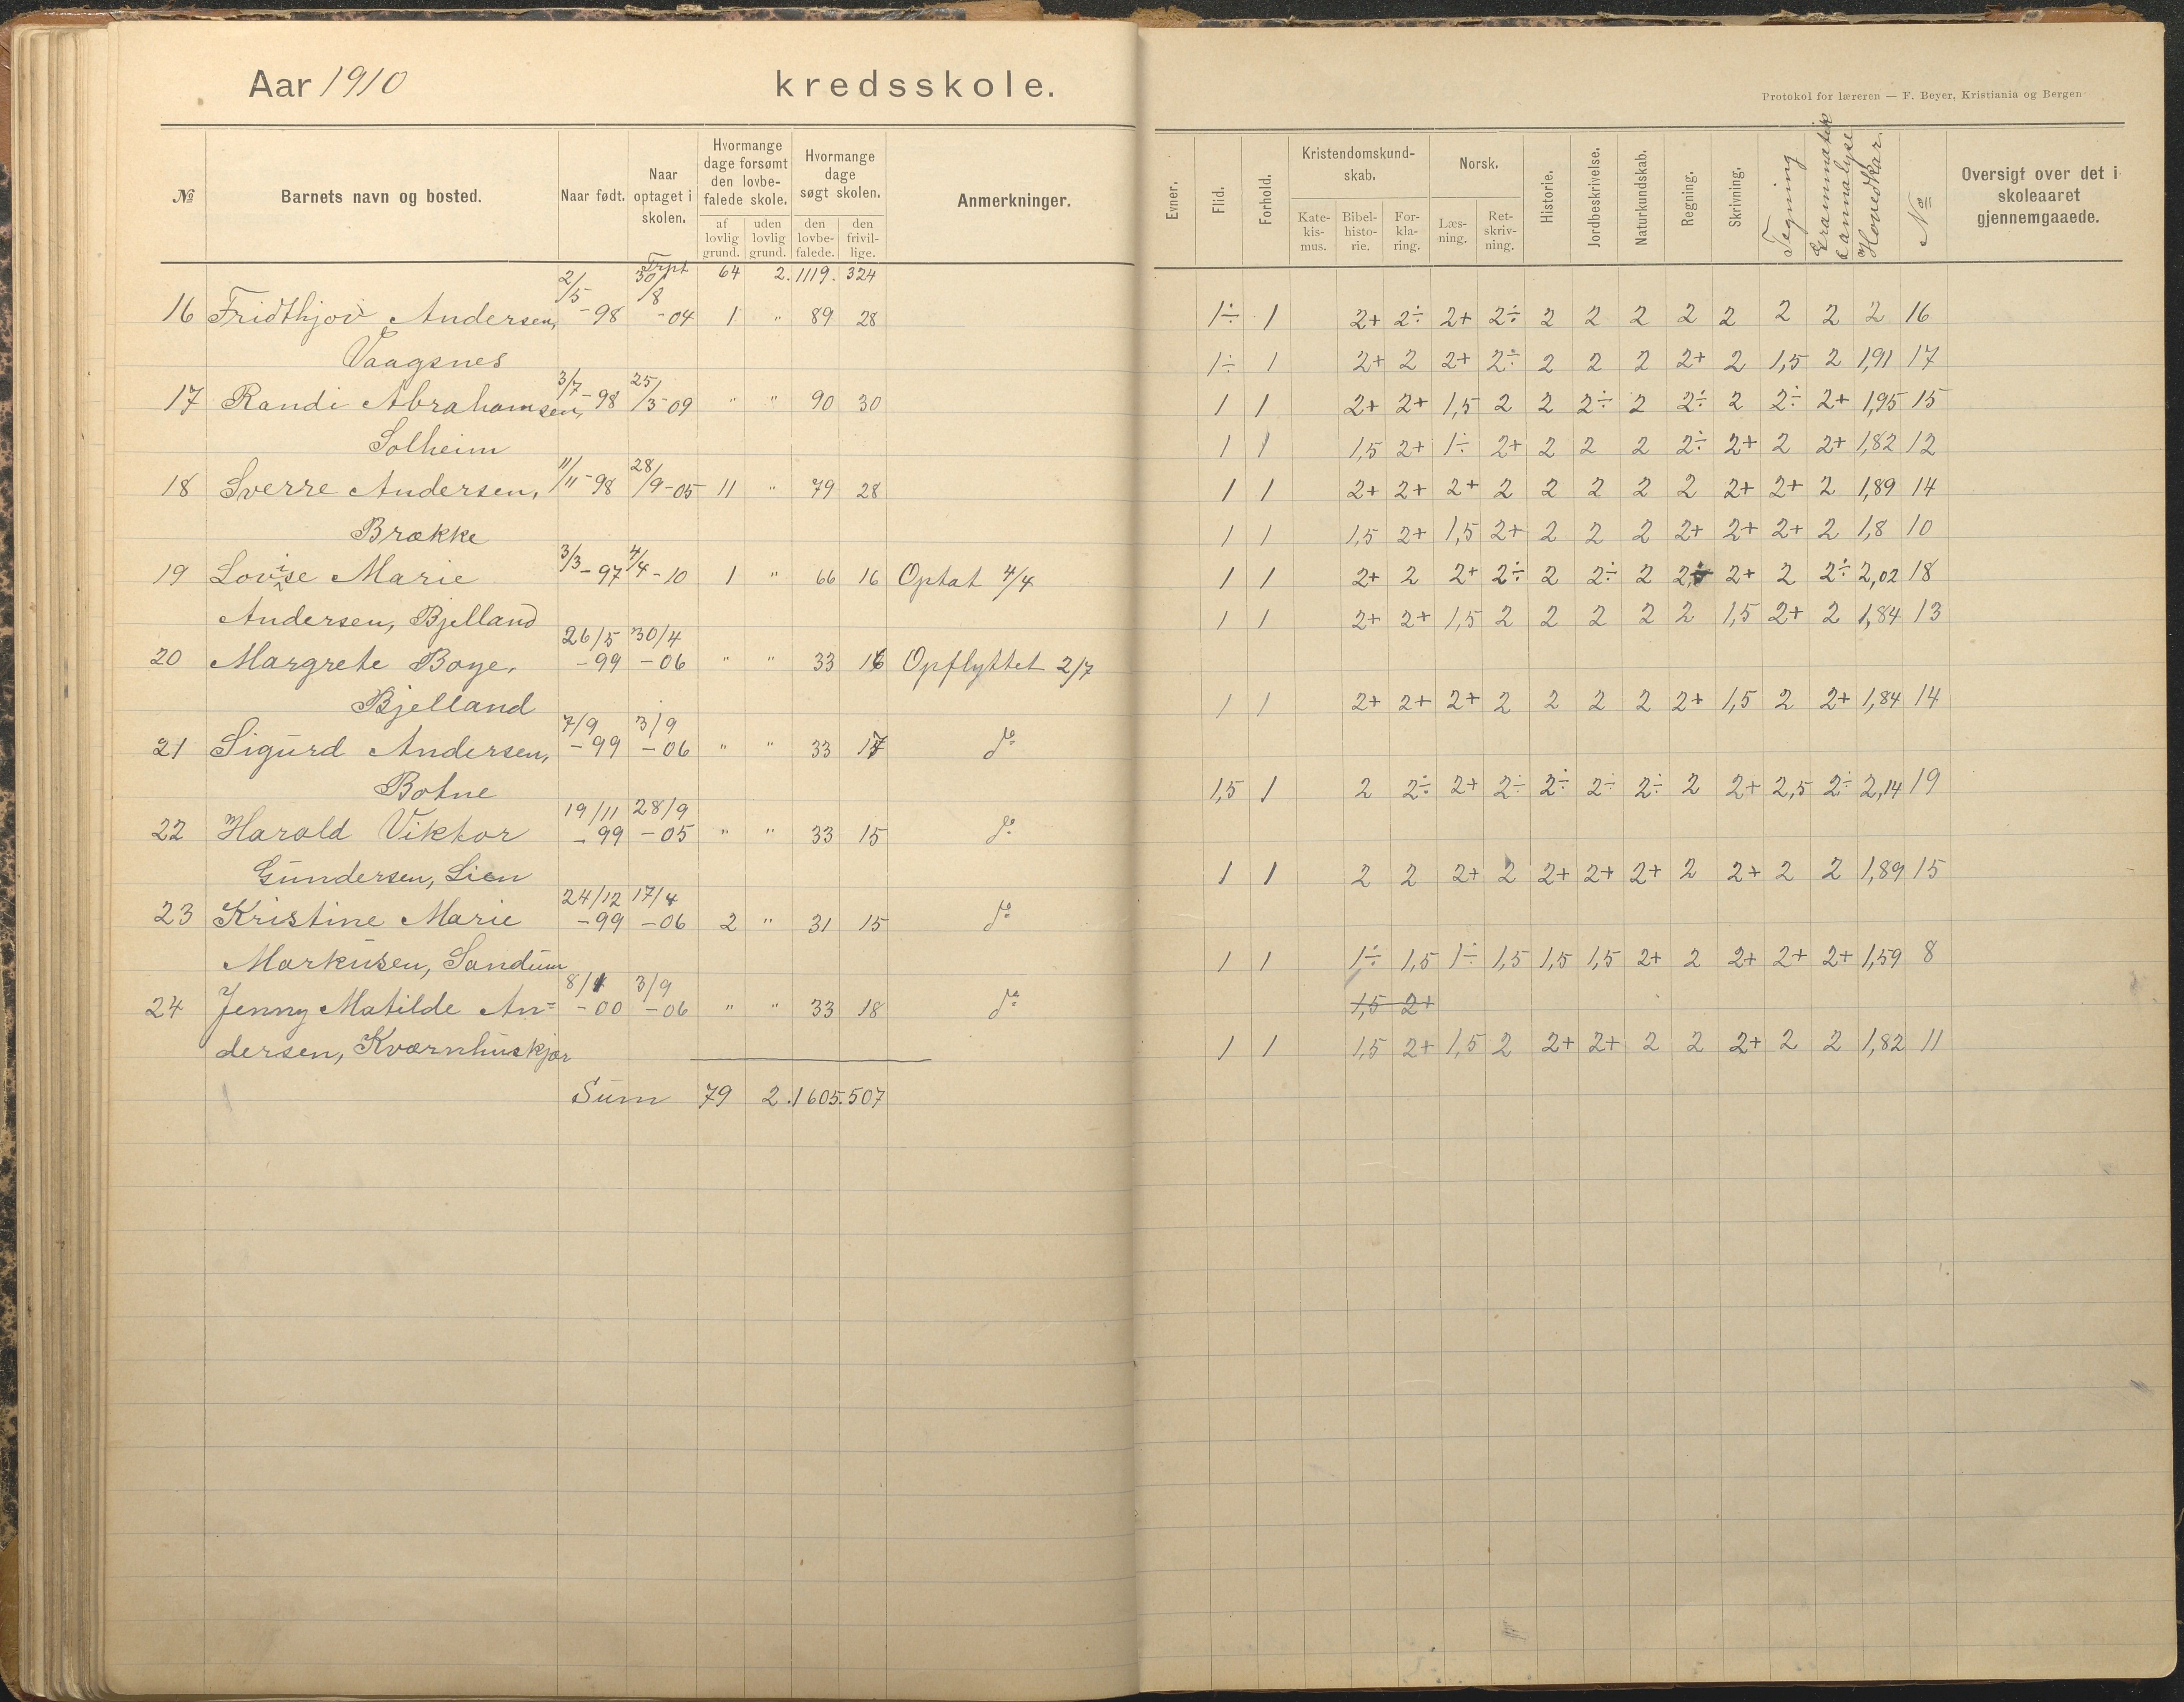 Aar 1910 kredsskole.
Protokol for læreren — F. Beyer, Kristiania og Bergen
№ Barnets navn og bosted. Naar født. Naar optaget i skolen. Hvormange dage forsømt den lovbefalede skole. af lovlig grund. uden lovlig grund. Hvormange dage søgt skolen. den lovbefalede. den frivillige. Anmerkninger.
Evner. Flid. Forhold. Kristendomskundskab. Katekismus. Bibelhistorie. Forklaring. Norsk. Læsning. Retskrivning. Historie. Jordbeskrivelse. Naturkundskab. Regning. Skrivning. Tegning Grammatik & annalyse Hovedkar. No Oversigt over det i skoleaaret gjennemgaaede.
Trpt 64 2. 1119. 324
2/5 30/8
16 Fridthjov Andersen, -98 -04 1 " 89 28
Vaagsnes
3/7 25/
17 Randi Abrahamsen, -98 /3-09 " " 90 30
Solheim
11/ 28/
18 Sverre Andersen, /11-98 /9-05 11 " 79 28
Brække
19 Lovise Marie 3/3-97 4/4-10 1 " 66 16 Optat 4/4
Andersen, Bjelland
26/5 30/4
20 Margrete Boye, -99 -06 " " 33 16 Opflyttet 2/7
Bjelland
7/9 3/9
21 Sigurd Andersen, -99 -06 " " 33 17 do
Botne
19/11 28/9
22 Harald Viktor -99 -05 " " 33 15 do
Gundersen, Lien
24/12 17/4
23 Kristine Marie -99 -06 2 " 31 15 do
Markusen, Sandum
8/1 3/9
24 Jenny Matilde An= -00 -06 " " 33 18 do
dersen, Kværnhuskjær
Sum 79 2. 1605. 507
1÷ 1 2+ 2÷ 2+ 2÷ 2 2 2 2 2 2 2 2 16
1÷ 1 2+ 2 2+ 2÷ 2 2 2 2+ 2 1,5 2 1,91 17
1 1 2+ 2+ 1,5 2 2 2÷ 2 2÷ 2 2÷ 2+ 1,95 15
1 1 1,5 2+ 1÷ 2+ 2 2 2 2÷ 2+ 2 2+ 1,82 12
1 1 2+ 2+ 2+ 2 2 2 2 2 2+ 2+ 2 1,89 14
1 1 1,5 2+ 1,5 2+ 2 2 2 2+ 2+ 2+ 2 1,8 10
1 1 2+ 2 2+ 2÷ 2 2÷ 2 2÷ 2+ 2 2÷ 2,02 18
1 1 2+ 2+ 1,5 2 2 2 2 2 1,5 2+ 2 1,84 13
1 1 2+ 2+ 2+ 2 2 2 2 2+ 1,5 2 2+ 1,84 14
1,5 1 2 2÷ 2+ 2÷ 2÷ 2÷ 2÷ 2 2+ 2,5 2÷ 2,14 19
1 1 2 2 2+ 2 2+ 2+ 2+ 2 2+ 2 2 1,89 15
1 1 1÷ 1,5 1÷ 1,5 1,5 1,5 2+ 2 2+ 2+ 2+ 1,59 8
1,5 2+
1 1 1,5 2+ 1,5 2 2+ 2+ 2 2 2+ 2 2 1,82 11